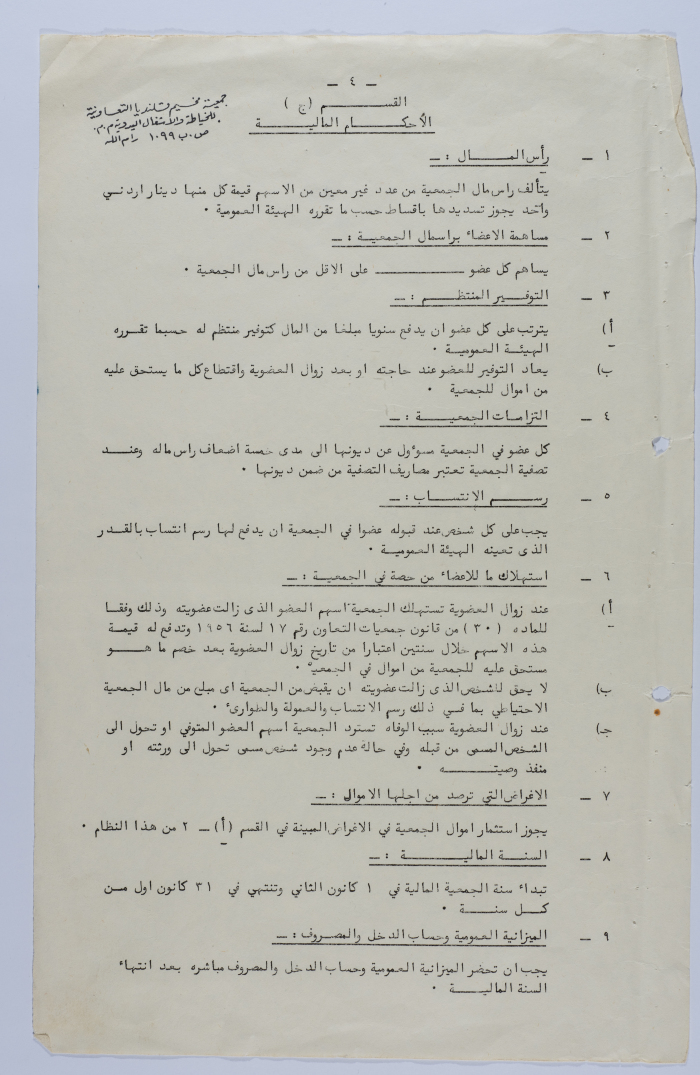 - ٤ -
جمعية مخيم قلنديا التعاونية
للخياطة والاشغال اليدوية م.م.
ص.ب ١٠٩٩ رام الله
القسم (ج)
الأحكام المالية
١ - رأس المال : -
يتألف راس مال الجمعية من عدد غير معين من الاسهم قيمة كل منها دينار اردني
واحد يجوز تسديدها باقساط حسب ما تقرره الهيئة العمومية .
٢ - مساهمة الاعضاء براسمال الجمعية : -
يساهم كل عضو ــــــــ على الاقل من راس مال الجمعية .
٣ - التوفير المنتظم : -
أ) يترتب على كل عضو ان يدفع سنويا مبلغا من المال كتوفير منتظم له حسبما تقرره
الهيئة العمومية .
ب) يعاد التوفير للعضو عند حاجته او بعد زوال العضوية واقتطاع كل ما يستحق عليه
من اموال للجمعية .
٤ - التزامات الجمعية : -
كل عضو في الجمعية مسؤول عن ديونها الى مدى خمسة اضعاف راس ماله وعند
تصفية الجمعية تعتبر مصاريف التصفية من ضمن ديونها .
٥ - رسم الانتساب : -
يجب على كل شخص عند قبوله عضوا في الجمعية ان يدفع لها رسم انتساب بالقدر
الذى تعينه الهيئة العمومية .
٦ - استهلاك ما للاعضاء من حصة في الجمعية : -
أ) عند زوال العضوية تستهلك الجمعية اسهم العضو الذى زالت عضويته وذلك وفقا
للماده (٣٠) من قانون جمعيات التعاون رقم ١٧ لسنة ١٩٥٦ وتدفع له قيمة
هذه الاسهم خلال سنتين اعتبارا من تاريخ زوال العضوية بعد خصم ما هو
مستحق عليه للجمعية من اموال في الجمعية .
ب) لا يحق للشخص الذى زالت عضويته ان يقبض من الجمعية اى مبلغ من مال الجمعية
الاحتياطي بما فسي ذلك رسم الانتساب والعمولة والطوارىء .
جـ) عند زوال العضوية سبب الوفاه تسترد الجمعية اسهم العضو المتوفي او تحول الى
الشخص المسمى من قبله وفي حالة عدم وجود شخص مسمى تحول الى ورثته او
منفذ وصيته .
٧ - الاغراض التي ترصد من اجلها الاموال : -
يجوز استثمار اموال الجمعية في الاغراض المبينة في القسم (أ) - ٢ من هذا النظام .
٨ - السنة المالية : -
تبداء سنة الجمعية المالية في ١ كانون الثاني وتنتهي في ٣١ كانون اول من
كل سنة .
٩ - الميزانية العمومية وحساب الدخل والمصروف : -
يجب ان تحضر الميزانية العمومية وحساب الدخل والمصروف مباشره بعد انتهاء
السنة المالية .